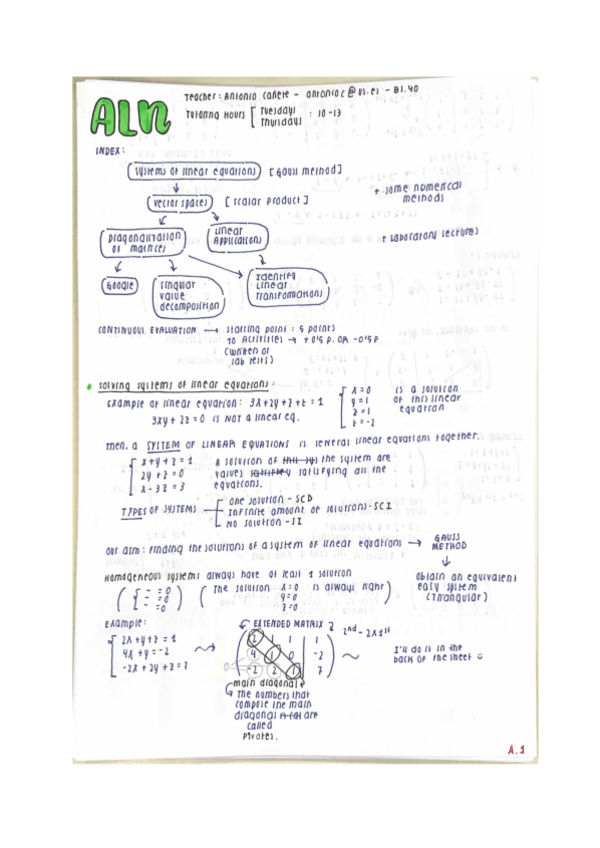 ALN
Teacher: Antonio Cañete - antonioc@us.es - B1.40
Tutoring Hours [ Tuesdays Thursdays : 10-13
INDEX:
Systems of linear equations [Gauss method]
Vector spaces [scalar product]
+ some numerical methods
Diagonalization of matrices
Linear Applications
+ Laboratory lectures
Google
Singular value decomposition
Identify Linear Transformations
CONTINUOUS EVALUATION → starting point = 5 points
10 Activities → +0'5 p. OR -0'5 p
(written or lab tests)
• Solving systems of linear equations:
Example of linear equation: 3x+2y+z+t=1
3xy+2z=0 is NOT a linear eq.
x=0
y=1
z=1
t=-2
is a solution of this linear equation
Then, a SYSTEM OF LINEAR EQUATIONS is several linear equations together.
x+y+z=1
2y+z=0
x-3z=3
A solution of this sys the system are
values satisfiey satisfying all the
equations.
TYPES OF SYSTEMS
one solution - SCD
Infinite amount of solutions - SCI
No solution - SI
Our aim: finding the solutions of a system of linear equations → GAUSS METHOD
Obtain an equivalent easy system (triangular)
Homogeneous systems always have at least 1 solution
( { - = 0 - = 0 - = 0 ) ( The solution x=0 y=0 z=0 is always right )
Example:
2x+y+z=1
4x+y=-2
-2x+2y+z=7
EXTENDED MATRIX
2 1 1 | 1
4 1 0 | -2
-2 2 1 | 7
2nd - 2x1st
~
I'll do it in the back of the sheet
0
main diagonal
The numbers that
compose the main
diagonal are
called
Pivotes.
A.1